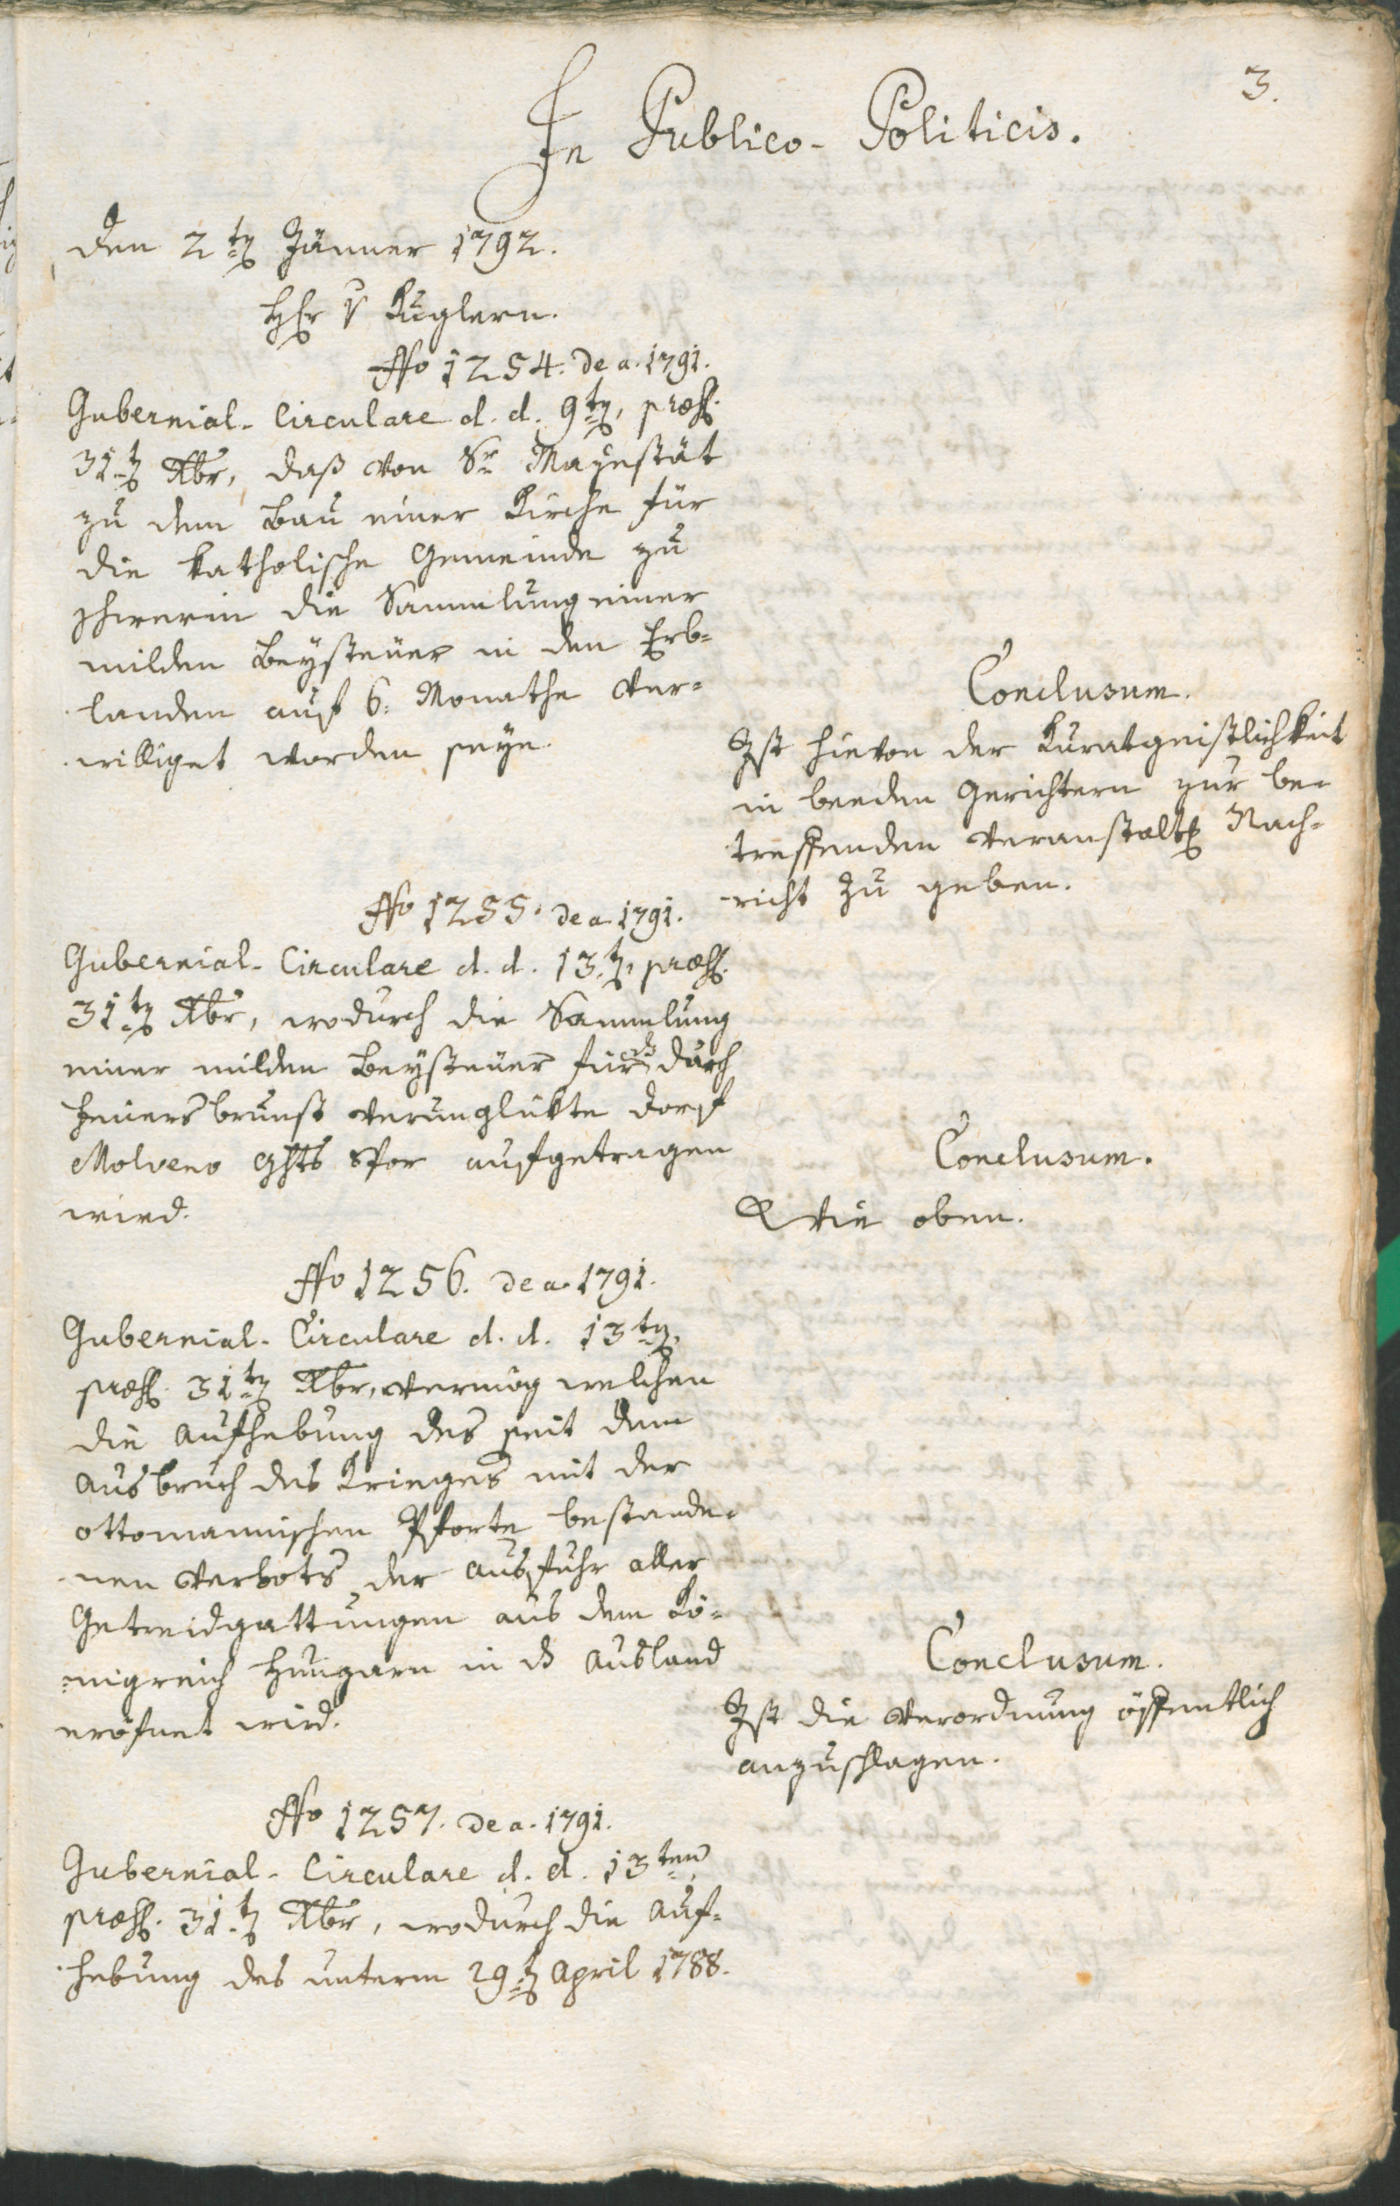 3.
In Publico-Politicis.
den 2ten Jänner 1792.
Hr v Kuglern.
No 1254. de a. 1791.
Gubernial-Circulare d. d. 9ten, præs.
31ten Xbr, daß von Sr Mayestät
zu dem Bau einer Kirche für
die katholische Gemeinde zu
Schwerin die Sammlung einer
milden Beysteuer in den Erb-
landen auf 6. Monathe ver-
williget worden seye.
Conclusum.
Ist hievon der Kuratgeistlichkeit
in beeden Gerichtern zur be-
treffenden Veranstaltg Nach-
richt zu geben.
No 1255. de a 1791.
Gubernial-Circulare d. d. 13ten, præs.
31ten Xbr, wodurch die Sammlung
einer milden Beysteuer für das durch
Feuersbrunst verunglükte Dorf
Molveno Ghts Spor aufgetragen
wird.
Conclusum.
Wie oben.
No 1256. de a. 1791.
Gubernial-Circulare d. d. 13ten,
præs. 31ten Xbr, vermög welchen
die Aufhebung des seit dem
Ausbruch des Krieges mit der
ottomannischen Pforte bestande-
nen Verbots der Ausfuhr aller
Getreidgattungen aus dem Kö-
nigreich Hungarn in das Ausland
eröfnet wird.
Conclusum.
Ist die Verordnung öffentlich
anzuschlagen.
No 1257. de a. 1791.
Gubernial-Circulare d. d. 13ten,
præs. 31ten Xbr, wodurch die Auf-
hebung des unterm 29ten April 1788.